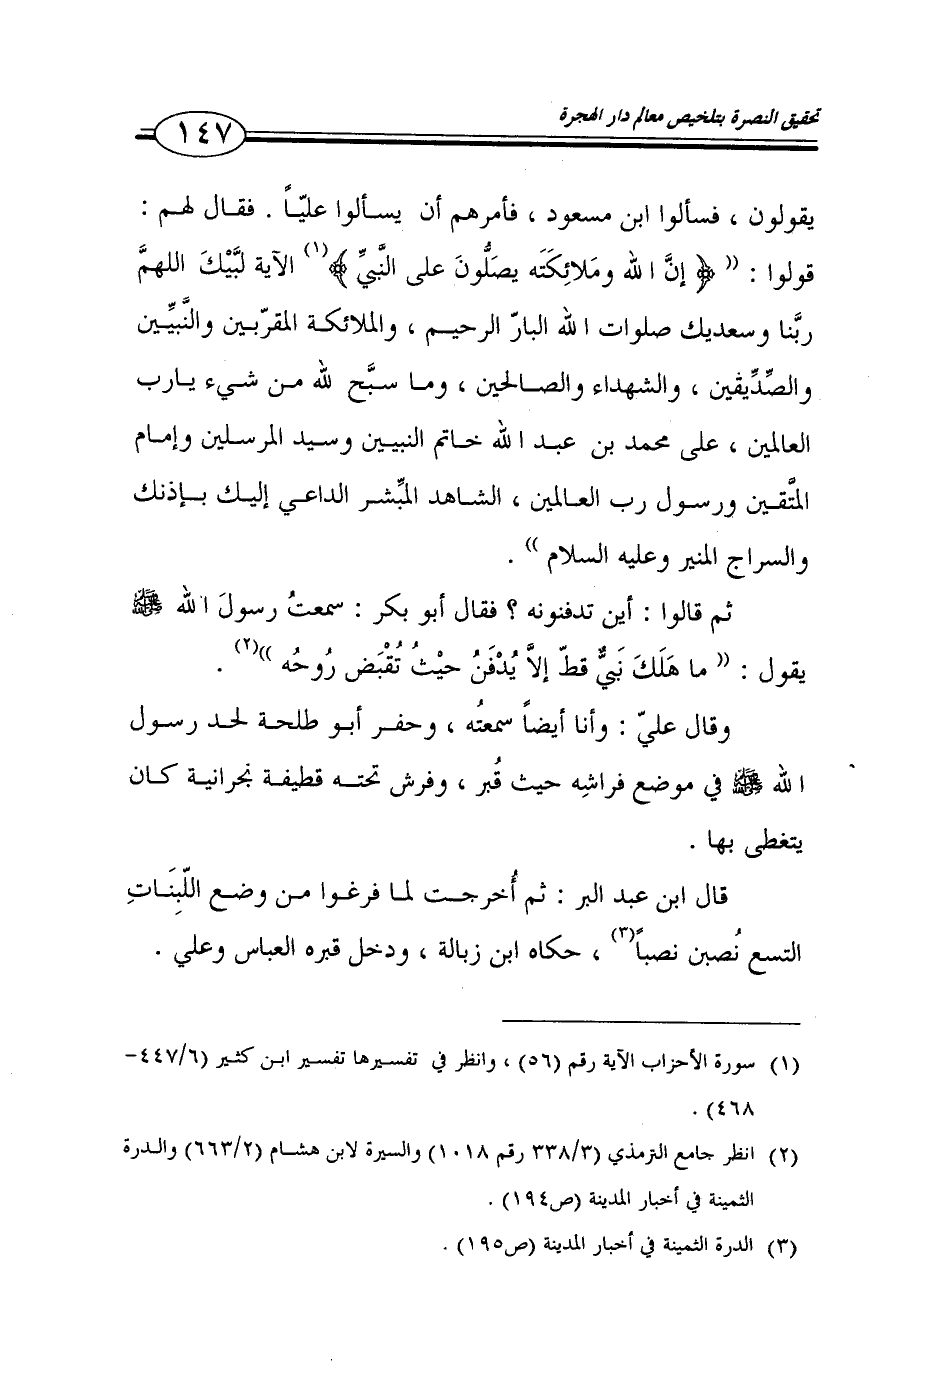 تحقيق النصرة بتلخيص معالم دار الهجرة
١٤٧
يقولون ، فسألوا ابن مسعود ، فأمرهم أن يسألوا عليّاً . فقال لهم :
قولوا : (( ﴿ إنَّ الله ومَلائِكَتَه يصَلُّونَ على النَّبيِّ ﴾(١) الآية لبَّيْكَ اللهمَّ
ربَّنا وسعديك صلوات الله البارّ الرحيم ، والملائكة المقرّبين والنَّبيِّين
والصِّدِّيقين ، والشهداء والصالحين ، وما سبَّح لله من شيء يارب
العالمين ، على محمد بن عبد الله خاتم النبيين وسيد المرسلين وإمام
المتَّقين ورسول رب العالمين ، الشاهد المبِّشر الداعي إليك بإذنك
والسراج المنير وعليه السلام )) .
ثم قالوا : أين تدفنونه ؟ فقال أبو بكر : سمعتُ رسولَ الله ﷺ
يقول : (( ما هَلَكَ نَبيٌّ قطّ إلاَّ يُدْفَنُ حيْثُ تُقْبَض رُوحُه ))(٢) .
وقال عليّ : وأنا أيضاً سمعتُه ، وحفر أبو طلحة لحد رسول
الله ﷺ في موضع فراشِه حيث قُبر ، وفرش تحته قطيفة نجرانية كان
يتغطى بها .
قال ابن عبد البر : ثم أُخرجت لما فرغوا من وضع اللَّبِنَاتِ
التسع نُصبن نصباً(٣) ، حكاه ابن زبالة ، ودخل قبره العباس وعلي .
(١) سورة الأحزاب الآية رقم (٥٦) ، وانظر في تفسيرها تفسير ابن كثير (٤٤٧/٦-
٤٦٨) .
(٢) انظر جامع الترمذي (٣٣٨/٣ رقم ١٠١٨) والسيرة لابن هشام (٦٦٣/٢) والدرة
الثمينة في أخبار المدينة (ص١٩٤) .
(٣) الدرة الثمينة في أخبار المدينة (ص١٩٥) .